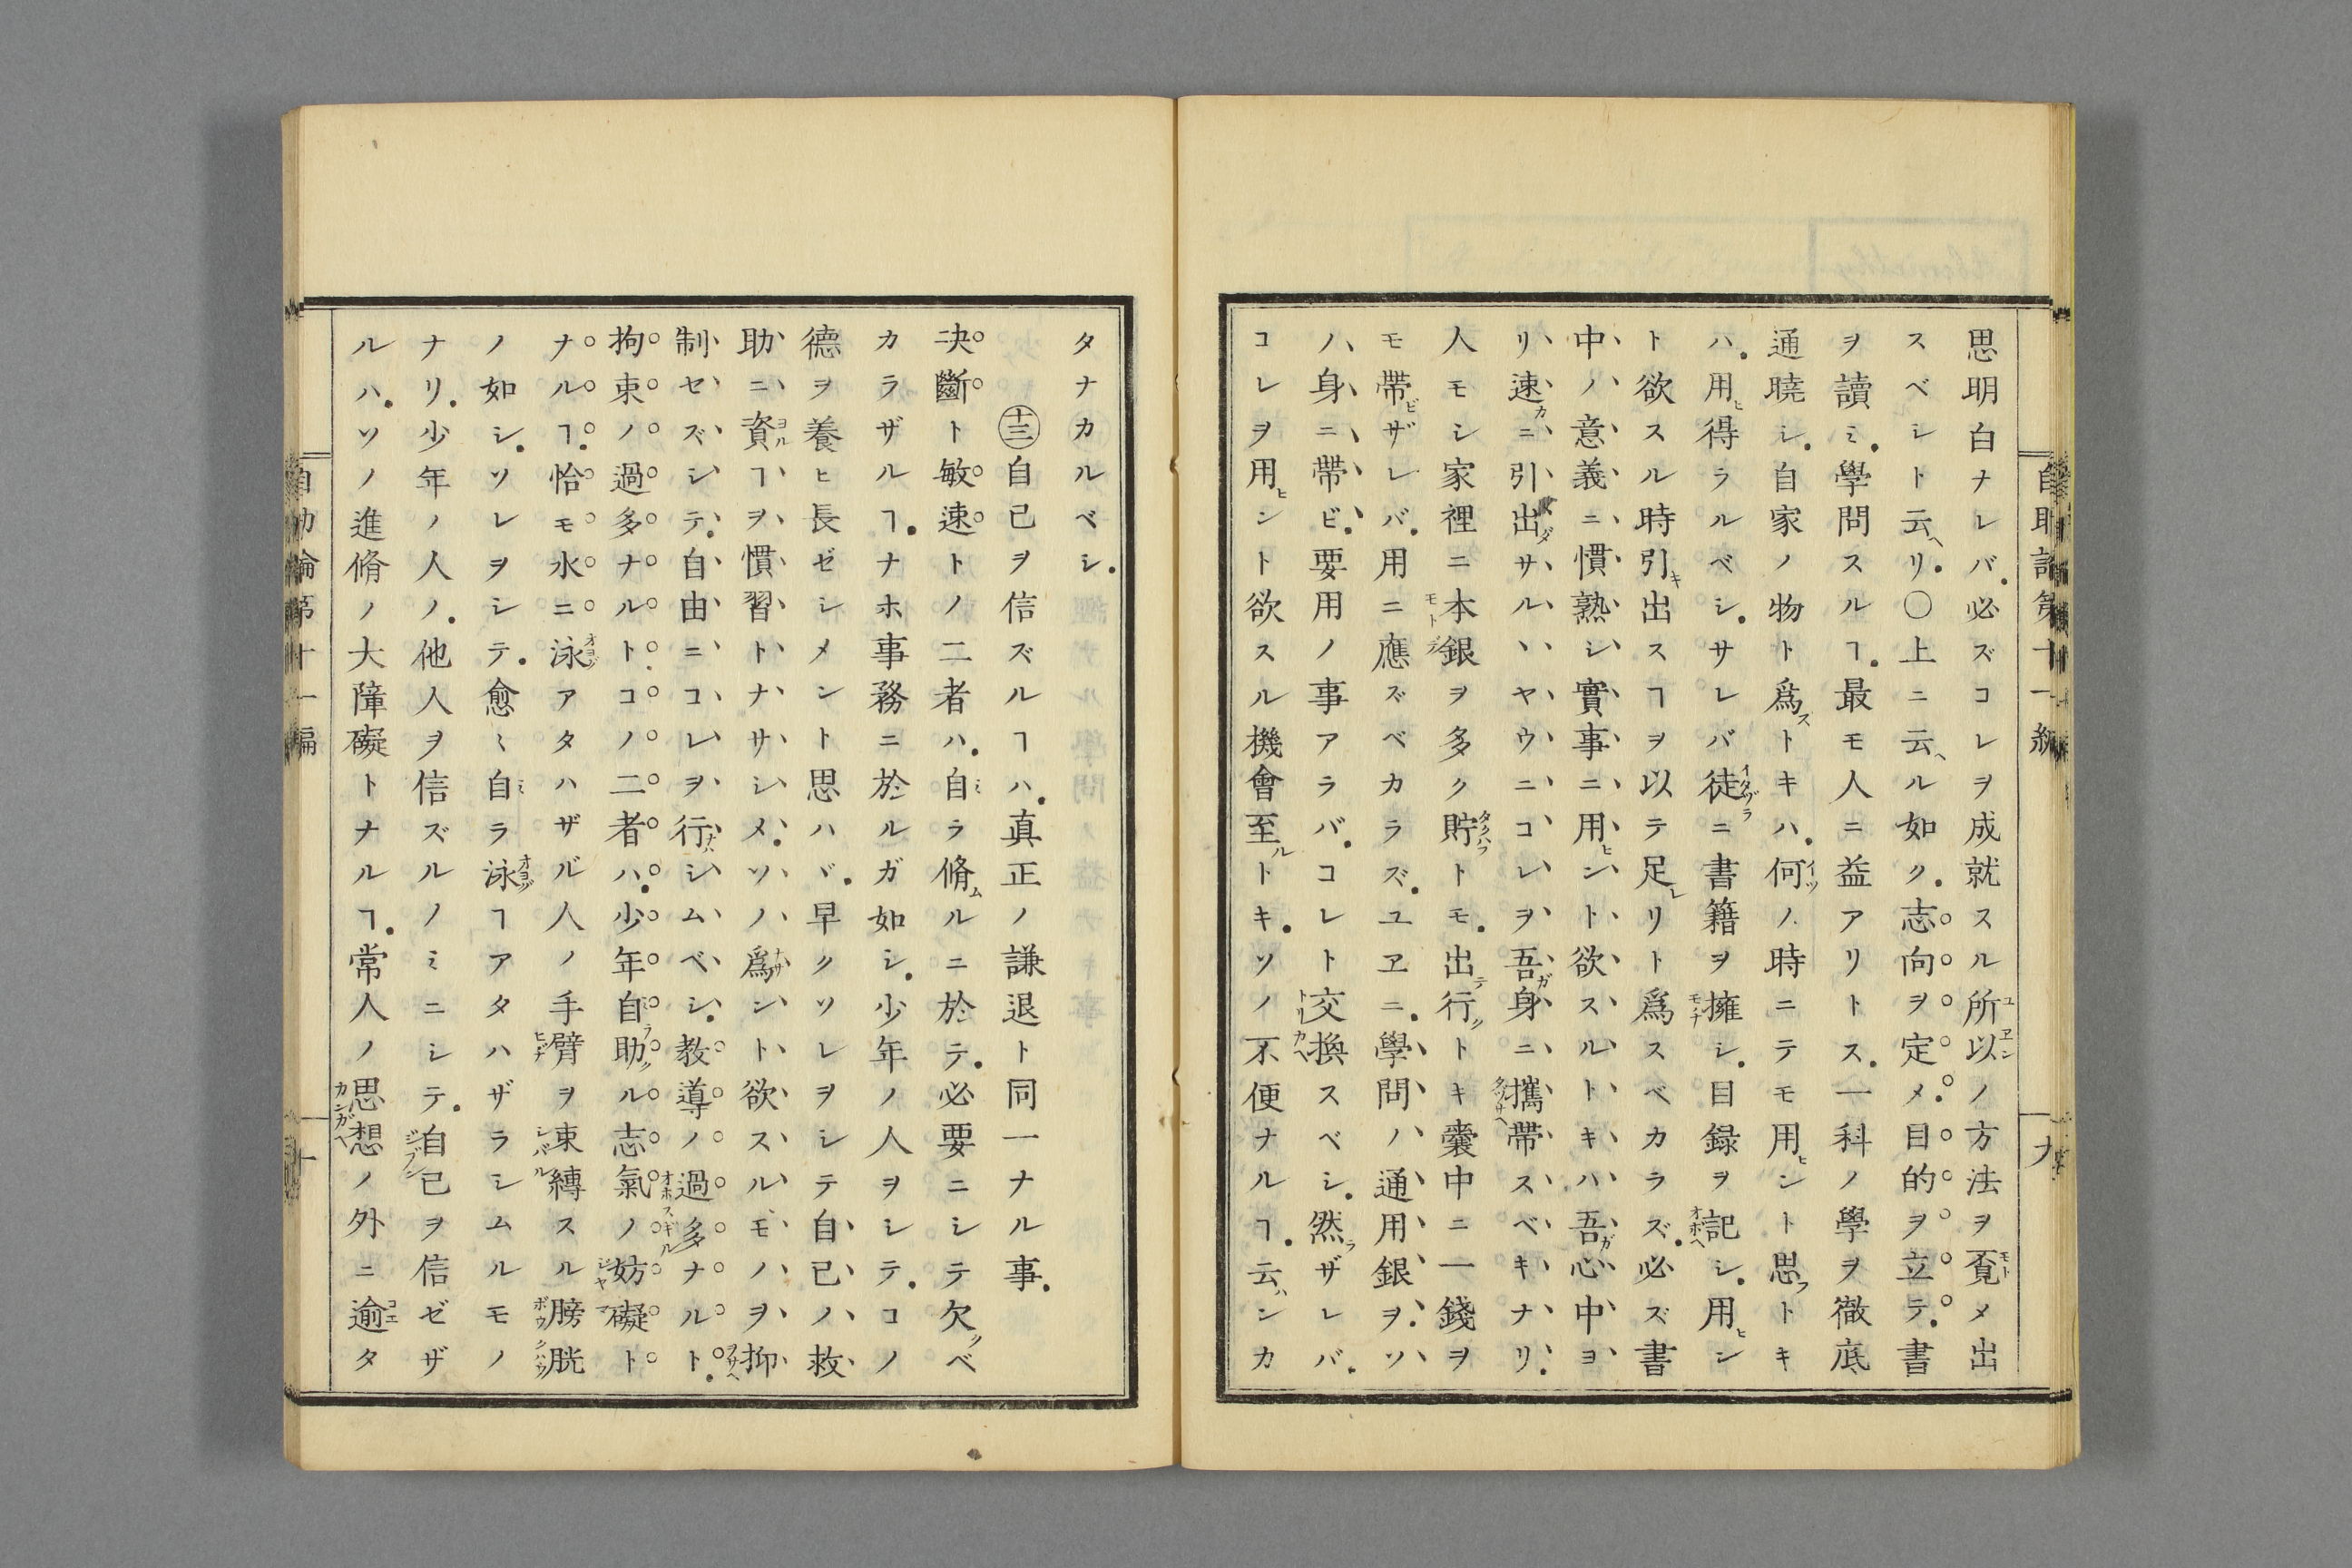 思明白ナレバ.必ズコレヲ成就スル所以ノ方法ヲ覔メ出
スベシト云ヘリ.〇上ニ云ヘル如ク.志向ヲ定メ.目的ヲ立テ.書
ヲ讀ミ.學問スルヿ.最モ人ニ益アリトス.一科ノ學ヲ徹底
通曉シ.自家ノ物ト爲ストキハ.何ノ時ニテモ用ヒント思フトキ
ハ.用ヒ得ラルベシ.サレバ徒ニ書籍ヲ擁シ.目録ヲ記シ.用ヒン
ト欲スル時引キ出スヿヲ以テ足レリト爲スベカラズ.必ズ書
中ノ意義ニ慣熟シ實事ニ用ヒント欲スルトキハ吾ガ心中ヨ
リ速カニ引出ダサルヽヤウニコレヲ吾ガ身ニ攜帶スベキナリ.
人モシ家裡ニ本銀ヲ多ク貯トモ.出テ行クトキ囊中ニ一錢ヲ
モ帶ビザレバ.用ニ應ズベカラズ.ユヱニ.學問ノ通用銀ヲ.ソ
ノ身ニ帶ビ.要用ノ事アラバ.コレト交換スベシ.然ラザレバ.
コレヲ用ヒント欲スル機會至ルトキ.ソノ不便ナルヿ.云ハンカ
自助論第十一編
九
タナカルベシ.
十三自己ヲ信ズルヿハ.真正ノ謙退ト同一ナル事.
决斷ト敏速トノ二者ハ.自ミラ脩ムルニ於テ.必要ニシテ欠クベ
カラザルヿ.ナホ事務ニ於ルガ如シ.少年ノ人ヲシテ.コノ
德ヲ養ヒ長ゼシメント思ハヾ.早クソレヲシテ自己ノ救
助ニ資ヿヲ慣習トナサシメ.ソノ爲サント欲スルモノヲ抑
制セズシテ.自由ニコレヲ行ナハシムベシ.教導ノ過多ナルト.
拘束ノ過多ナルトコノ二者ハ.少年自ラ助クル志氣ノ妨礙ト
ナルヿ.恰モ水ニ泳アタハザル人ノ手臂ヲ束縛スル膀胱
ノ如シ.ソレヲシテ.愈〻自ミラ泳ヿアタハザラシムルモノ
ナリ.少年ノ人ノ.他人ヲ信ズルノミニシテ.自己ヲ信ゼザ
ルハ.ソノ進脩ノ大障礙トナルヿ.常人ノ思想ノ外ニ逾タ
自助論第十一編
十